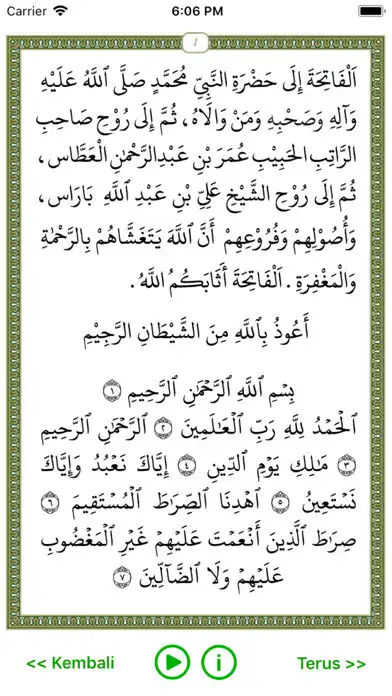 Carrier 6:06 PM
١
اَلْفَاتِحَةَ إِلَى حَضْرَةِ النَّبِيِّ مُحَمَّدٍ صَلَّى ٱللَّهُ عَلَيْهِ
وَآلِهِ وَصَحْبِهِ وَمَنْ وَالَاهُ ، ثُمَّ إِلَى رُوْحِ صَاحِبِ
الرَّاتِبِ الْحَبِيْبِ عُمَرَ بْنِ عَبْدِالرَّحْمٰنِ الْعَطَّاسِ ،
ثُمَّ إِلَى رُوْحِ الشَّيْخِ عَلِيِّ بْنِ عَبْدِ اللَّهِ بَارَاسٍ ،
وَأُصُوْلِهِمْ وَفُرُوْعِهِمْ أَنَّ اللَّهَ يَتَغَشَّاهُمْ بِالرَّحْمَةِ
وَالْمَغْفِرَةِ . اَلْفَاتِحَةَ أَثَابَكُمُ اللَّهُ .
أَعُوذُ بِٱللَّهِ مِنَ الشَّيْطَانِ الرَّجِيْمِ
بِسْمِ ٱللَّهِ ٱلرَّحْمَٰنِ ٱلرَّحِيمِ ١
ٱلْحَمْدُ لِلَّهِ رَبِّ ٱلْعَٰلَمِينَ ٢ ٱلرَّحْمَٰنِ ٱلرَّحِيمِ
٣ مَٰلِكِ يَوْمِ ٱلدِّينِ ٤ إِيَّاكَ نَعْبُدُ وَإِيَّاكَ
نَسْتَعِينُ ٥ ٱهْدِنَا ٱلصِّرَٰطَ ٱلْمُسْتَقِيمَ ٦
صِرَٰطَ ٱلَّذِينَ أَنْعَمْتَ عَلَيْهِمْ غَيْرِ ٱلْمَغْضُوبِ
عَلَيْهِمْ وَلَا ٱلضَّآلِّينَ ٧
<< Kembali i Terus >>